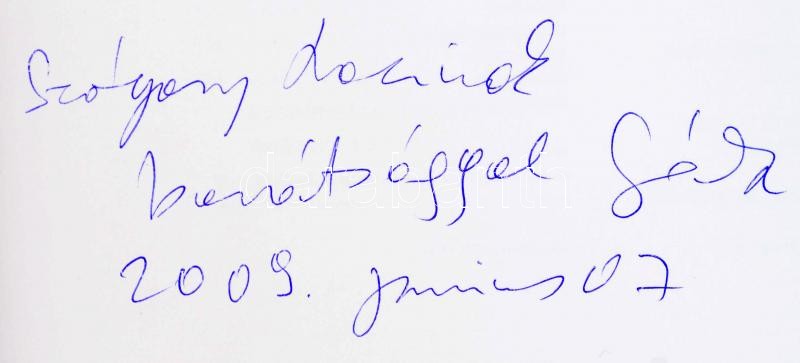 Lacinak
barátsággal Géza
2009. június 07
darabanth